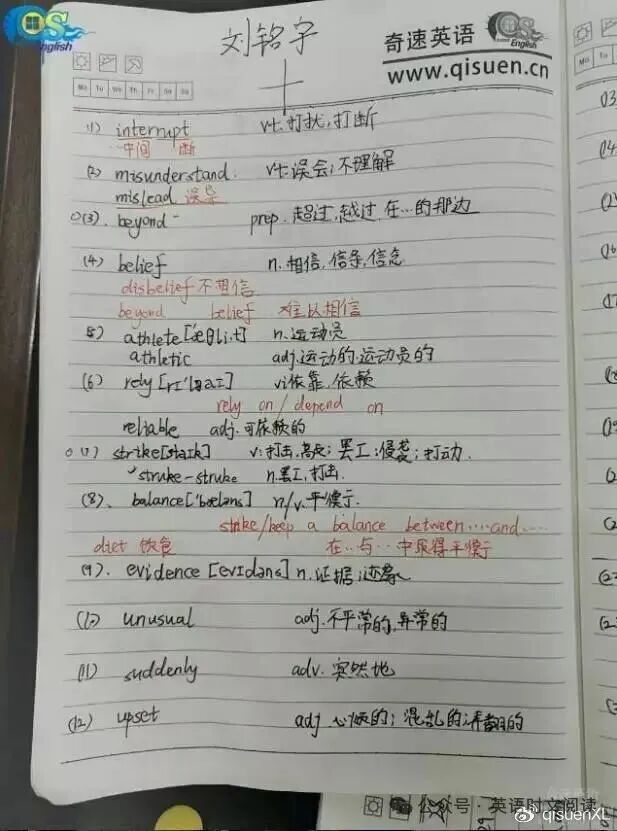 QS English
刘铭宇
奇速英语
QS English
www.qisuen.cn
Mo Tu We Th Fr Sa Su
(1) interrupt vt.打扰,打断
…中间 断
(2) misunderstand. vt:误会;不理解
mislead 误导
(3). beyond prep.超过,越过,在…的那边
(4) belief n.相信,信条,信念
disbelief 不相信
beyond belief 难以相信
5) athlete n.运动员
athletic adj.运动的,运动员的
(6) rely vi依靠,依赖
rely on/depend on
reliable adj.可依赖的
(7) strike v:打击,罢工;侵袭;打动.
struke-struke n.罢工,打击.
(8). balance n/v.平衡.
strike/keep a balance between……and……
diet 饮食 在…与…中取得平衡
(9). evidence n.证据;迹象
(10) unusual adj.不平常的,异常的
(11) suddenly adv.突然地
(12) upset adj.心烦的;混乱的
公众号·英语时文阅读
@qisuenXL